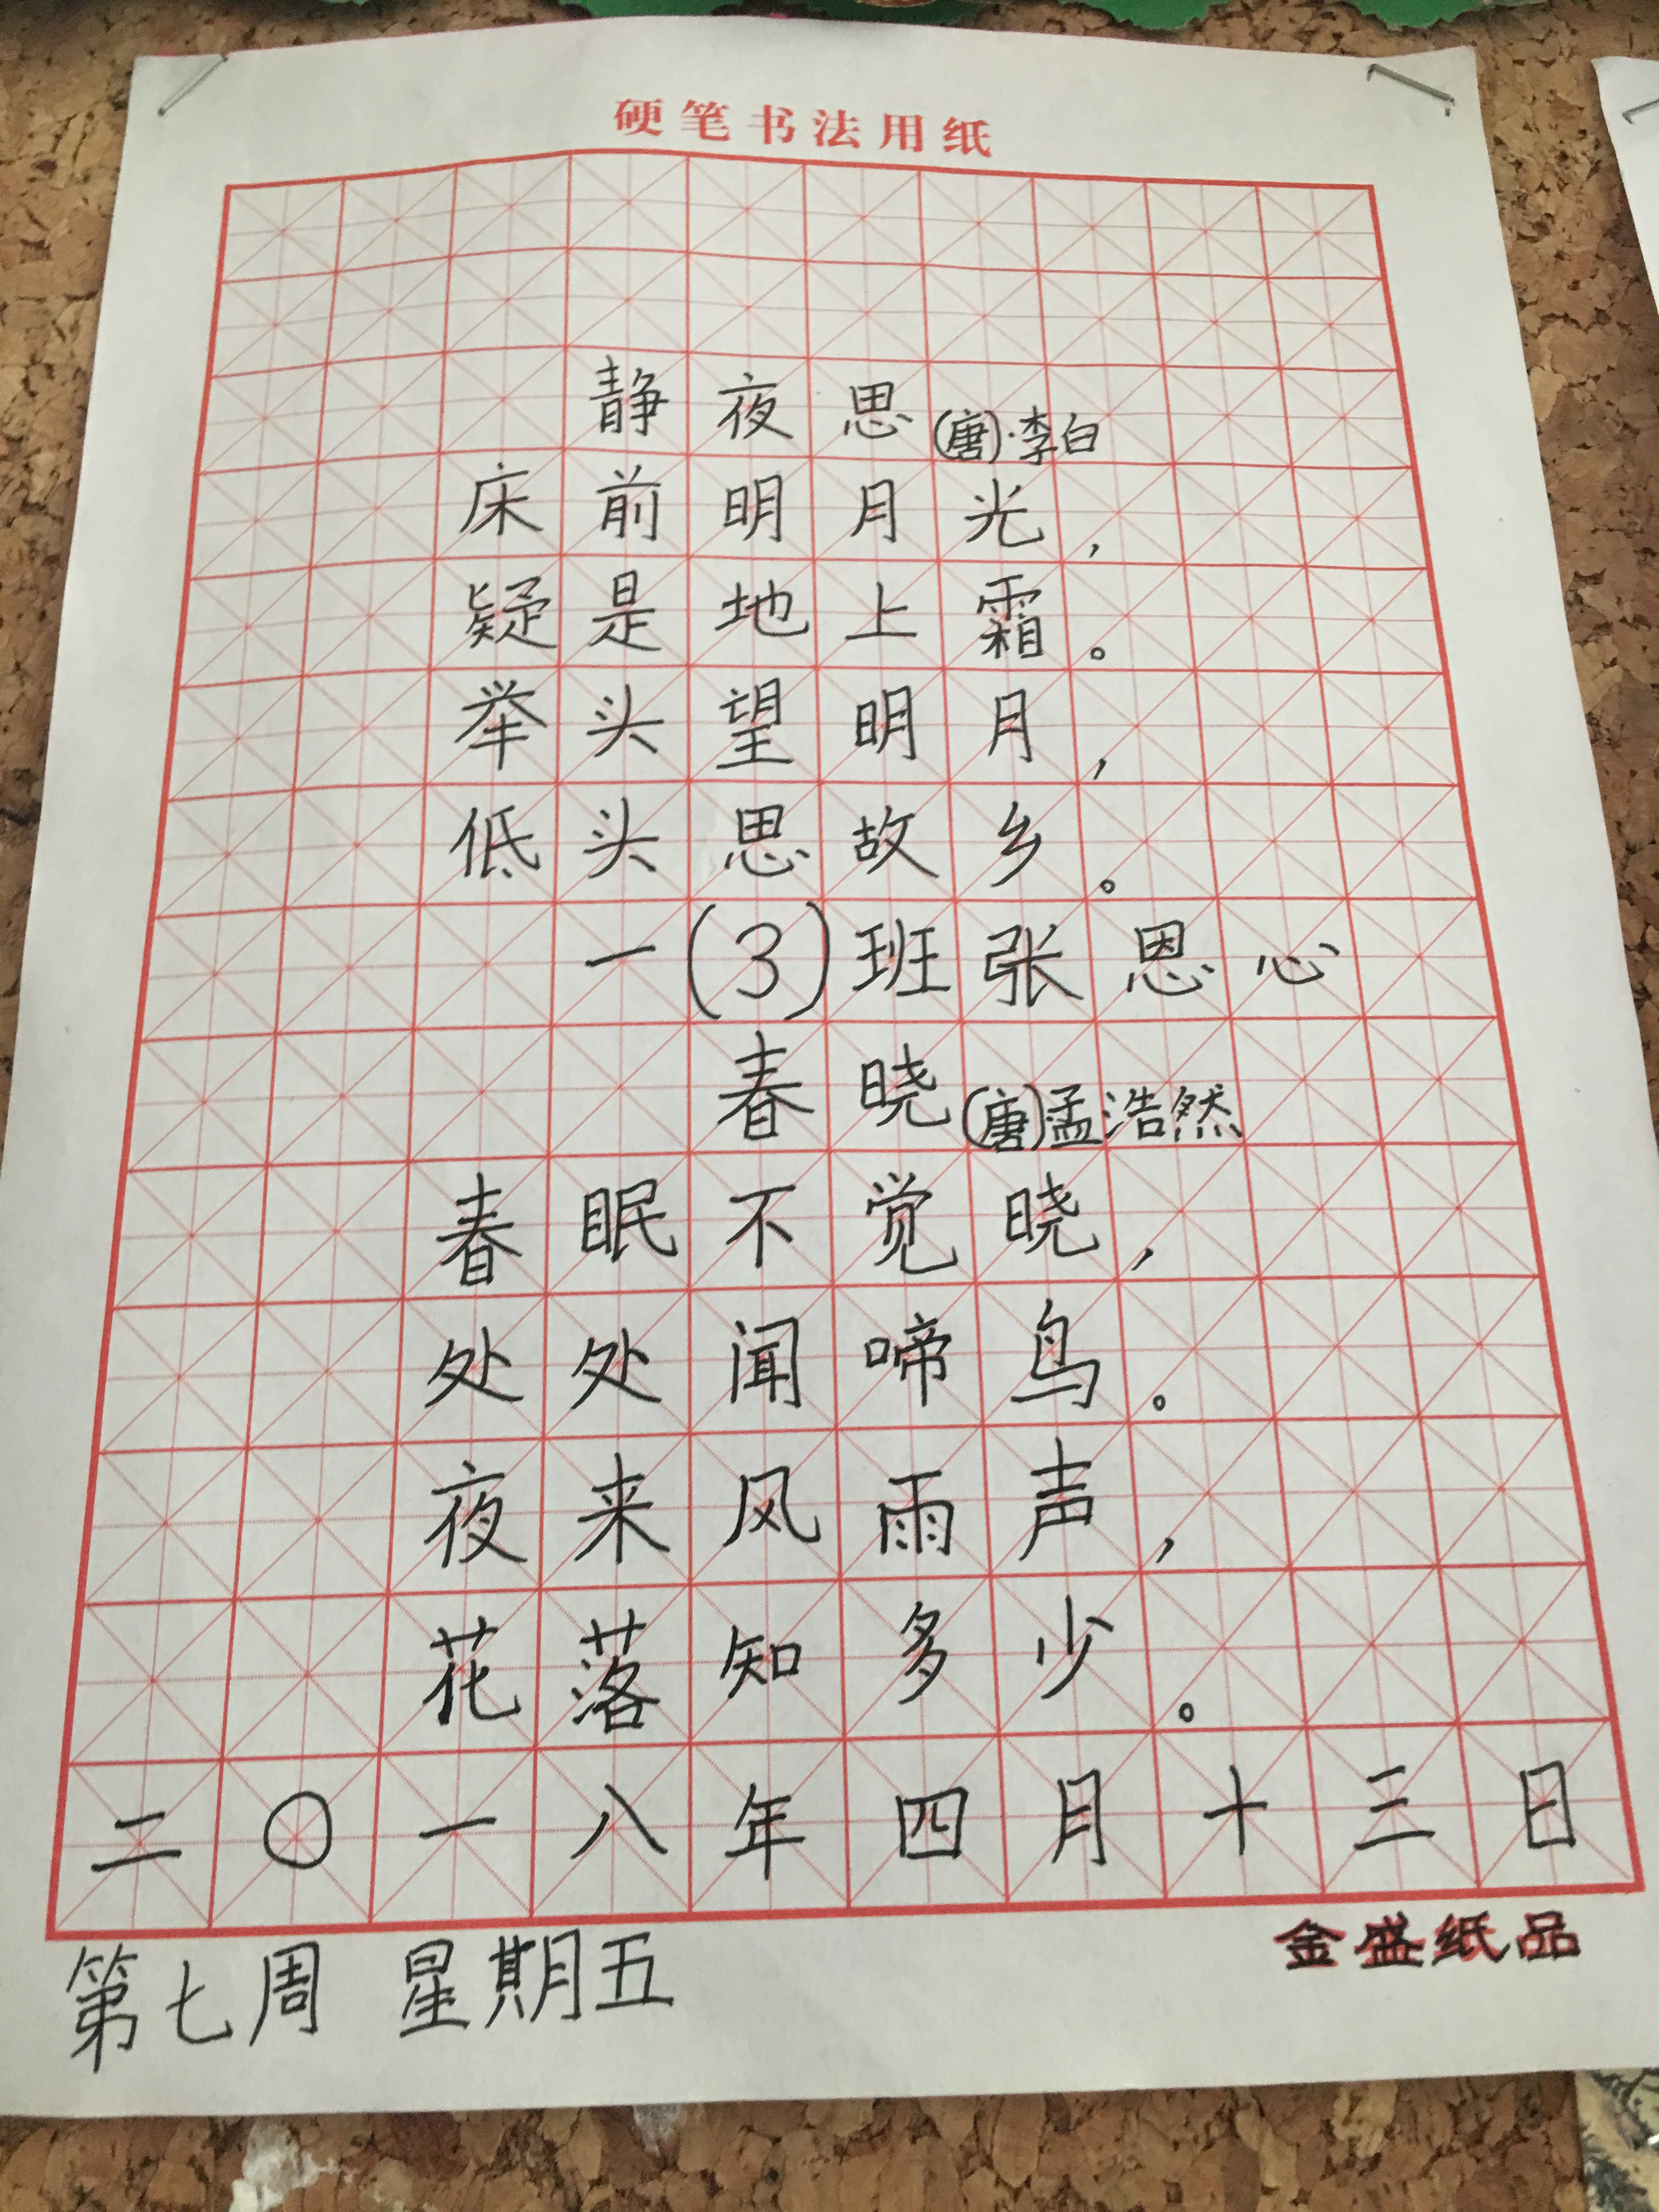 硬笔书法用纸
静夜思(唐)·李白
床前明月光，
疑是地上霜。
举头望明月，
低头思故乡。
一(3)班张恩心
春晓(唐)孟浩然
春眠不觉晓，
处处闻啼鸟。
夜来风雨声，
花落知多少。
二〇一八年四月十三日
金盛纸品
第七周 星期五